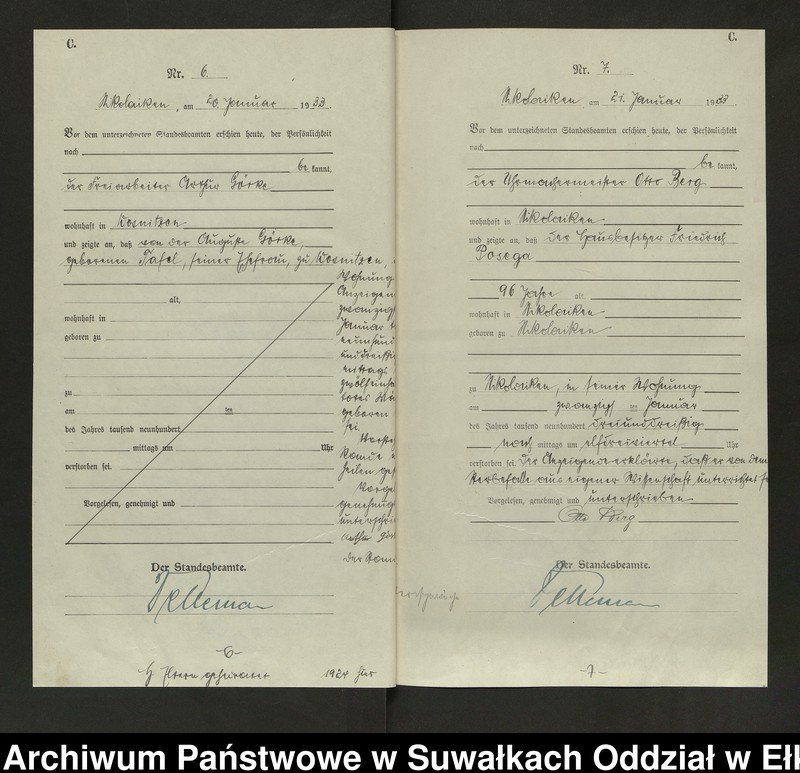 C.
Nr. 6.
Nikolaiken, am 20. Januar 1933.
Vor dem unterzeichneten Standesbeamten erschien heute, der Persönlichkeit
nach
be kannt,
der Freiarbeiter Arthur Görke
wohnhaft in
und zeigte an, daß von der Auguste Görke,
geborenen Tafel, seiner Ehefrau, zu
Wohnung
Anzeigen
zwanzig
alt,
Januar
wohnhaft in
neunhund
geboren zu
unddreißi
mittags
zwölfeinh
zu
totes
am ten
geboren
des Jahres tausend neunhundert
sei.
mittags um Uhr
verstorben sei.
Vorge
Vorgelesen, genehmigt und
genehmig
unterschri
Arthur Gör
Der Standesbeamte.
der Stan
-6-
Eltern geheiratet 1924
C.
Nr. 7.
Nikolaiken am 21. Januar 1933.
Vor dem unterzeichneten Standesbeamten erschien heute, der Persönlichkeit
nach
be kannt,
der Uhrmachermeister Otto Berg
wohnhaft in Nikolaiken
und zeigte an, daß der Hausbesitzer Friedrich
Posega
96 Jahre alt,
wohnhaft in Nikolaiken
geboren zu Nikolaiken
zu Nikolaiken, in seiner Wohnung
am zwanzigsten Januar
des Jahres tausend neunhundert dreiunddreißig
nach mittags um elfdreiviertel Uhr
verstorben sei. Der Anzeigende erklärte, daß er von dem
Sterbefalle aus eigener Wissenschaft unterrichtet sei
Vorgelesen, genehmigt und unterschrieben
Otto Berg
Der Standesbeamte.
-7-
Archiwum Państwowe w Suwałkach Oddział w Ełk